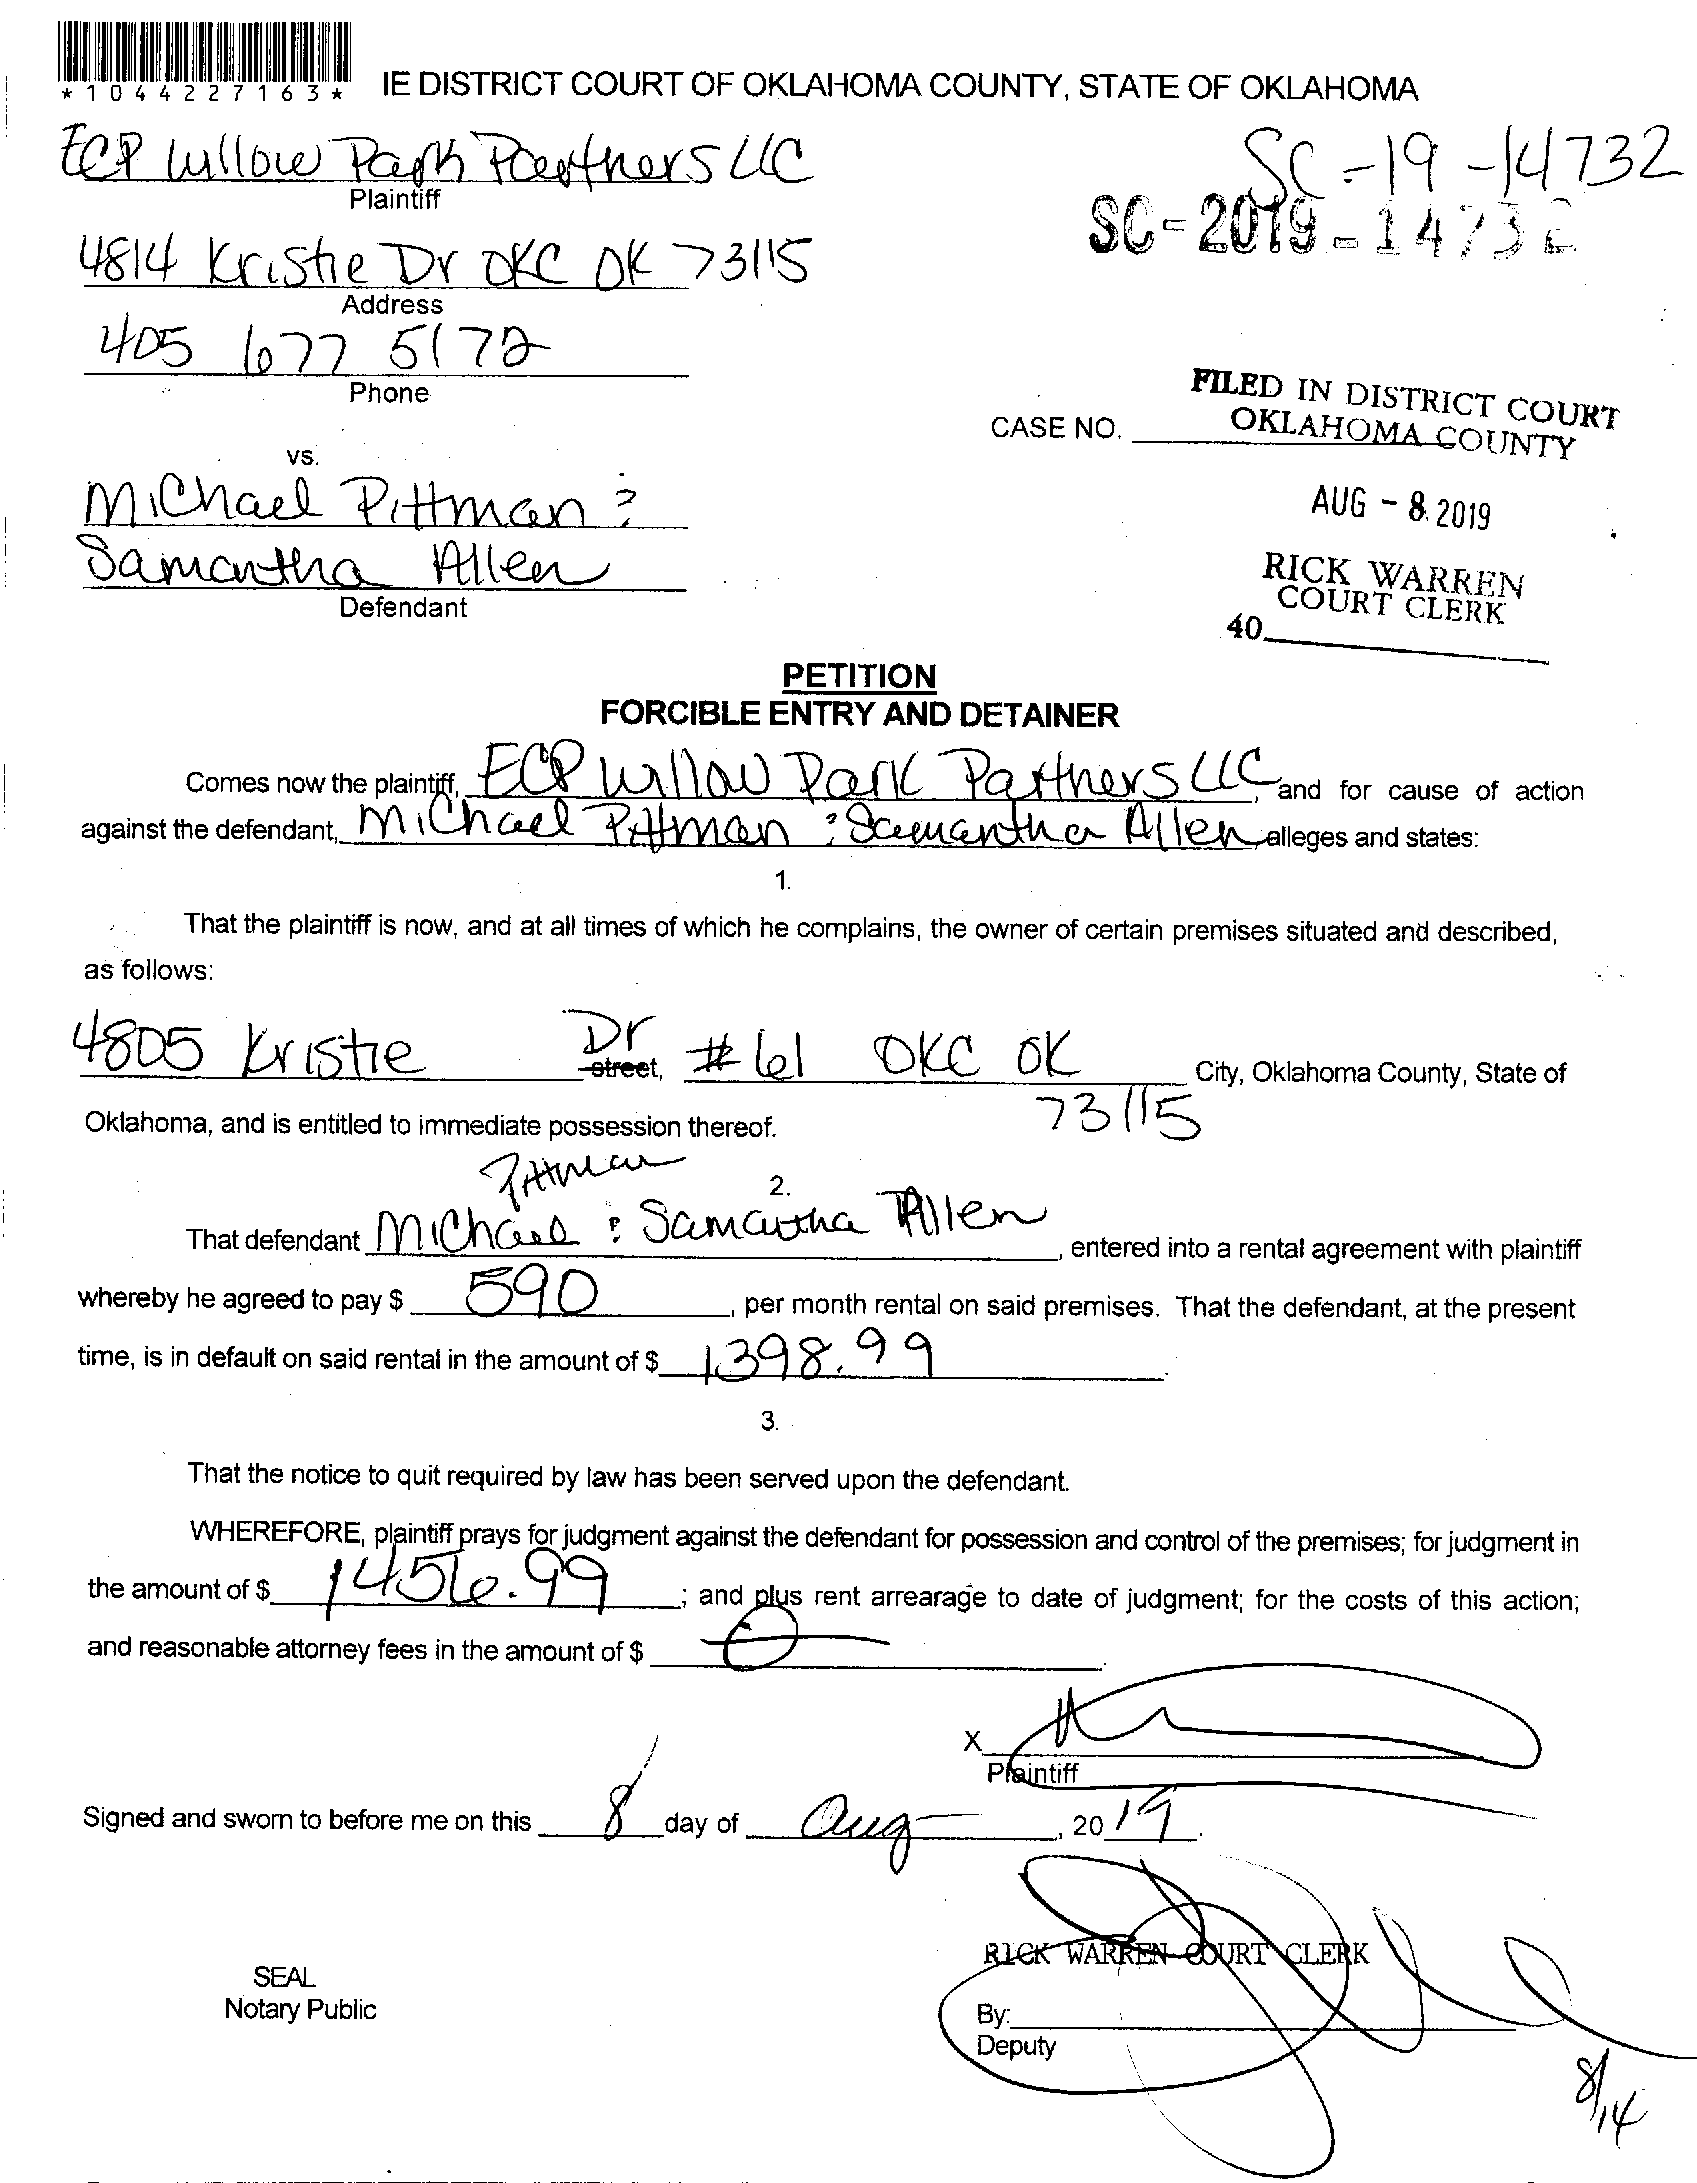 *1044227163*
IE DISTRICT COURT OF OKLAHOMA COUNTY, STATE OF OKLAHOMA
ECP Willow Park Partners LLC
Plaintiff
SC-19-14732
SC-2019-14732
4814 Kristie Dr OKC OK 73115
Address
405 677 5172
Phone
FILED IN DISTRICT COURT
OKLAHOMA COUNTY
CASE NO.
vs.
Michael Pittman &
AUG - 8 2019
Samantha Allen
Defendant
RICK WARREN
COURT CLERK
40
PETITION
FORCIBLE ENTRY AND DETAINER
Comes now the plaintiff, ECP Willow Park Partners LLC, and for cause of action
against the defendant, Michael Pittman & Samantha Allen alleges and states:
1.
That the plaintiff is now, and at all times of which he complains, the owner of certain premises situated and described,
as follows:
4805 Kristie Dr street, #61 OKC OK City, Oklahoma County, State of
73115
Oklahoma, and is entitled to immediate possession thereof.
Pittman
2.
That defendant Michael & Samantha Allen, entered into a rental agreement with plaintiff
whereby he agreed to pay $ 590, per month rental on said premises. That the defendant, at the present
time, is in default on said rental in the amount of $ 1398.99
3.
That the notice to quit required by law has been served upon the defendant.
WHEREFORE, plaintiff prays for judgment against the defendant for possession and control of the premises; for judgment in
the amount of $ 1456.99; and plus rent arrearage to date of judgment; for the costs of this action;
and reasonable attorney fees in the amount of $ 0
X
Plaintiff
Signed and sworn to before me on this 8 day of Aug, 2019.
RICK WARREN COURT CLERK
SEAL
Notary Public
By:
Deputy
8/14